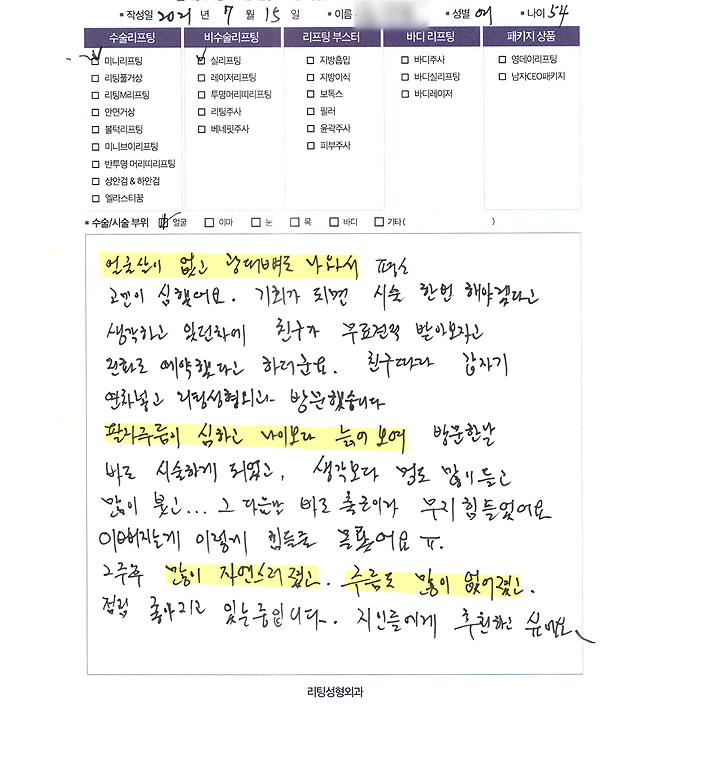 작성일 2021 년 7 월 15 일 이름 성별 여 나이 54
수술리프팅 비수술리프팅 리프팅 부스터 바디 리프팅 패키지 상품
미니리프팅 실리프팅 지방흡입 바디주사 영데이리프팅
리팅풀거상 레이저리프팅 지방이식 바디실리프팅 남자CEO패키지
리팅M리프팅 투명머리띠리프팅 보톡스 바디레이저
안면거상 리팅주사 필러
볼턱리프팅 베네핏주사 윤곽주사
미니브이리프팅 피부주사
반투명 머리띠리프팅
상안검 & 하안검
엘라스티꿈
수술/시술 부위 얼굴 이마 눈 목 바디 기타( )
얼굴살이 없고 광대뼈도 나와서 평소
고민이 심했어요. 기회가 되면 시술 한번 해야겠다고
생각하고 있던차에 친구가 무료견적 받아보자고
전화로 예약했다고 하더군요. 친구따라 갑자기
연차넣고 리팅성형외과 방문했습니다
팔자주름이 심하고 나이보다 늙어 보여 방문한날
바로 시술하게 되었고, 생각보다 멍도 많이 들고
많이 붓고... 그 다음날 바로 출근이라 무지 힘들었어요
이뻐지는게 이렇게 힘든줄 몰랐어요 ㅠ.
2주후 많이 자연스러워졌고. 주름도 많이 없어졌고.
점점 좋아지고 있는중입니다. 지인들에게 추천하고 싶네요
리팅성형외과